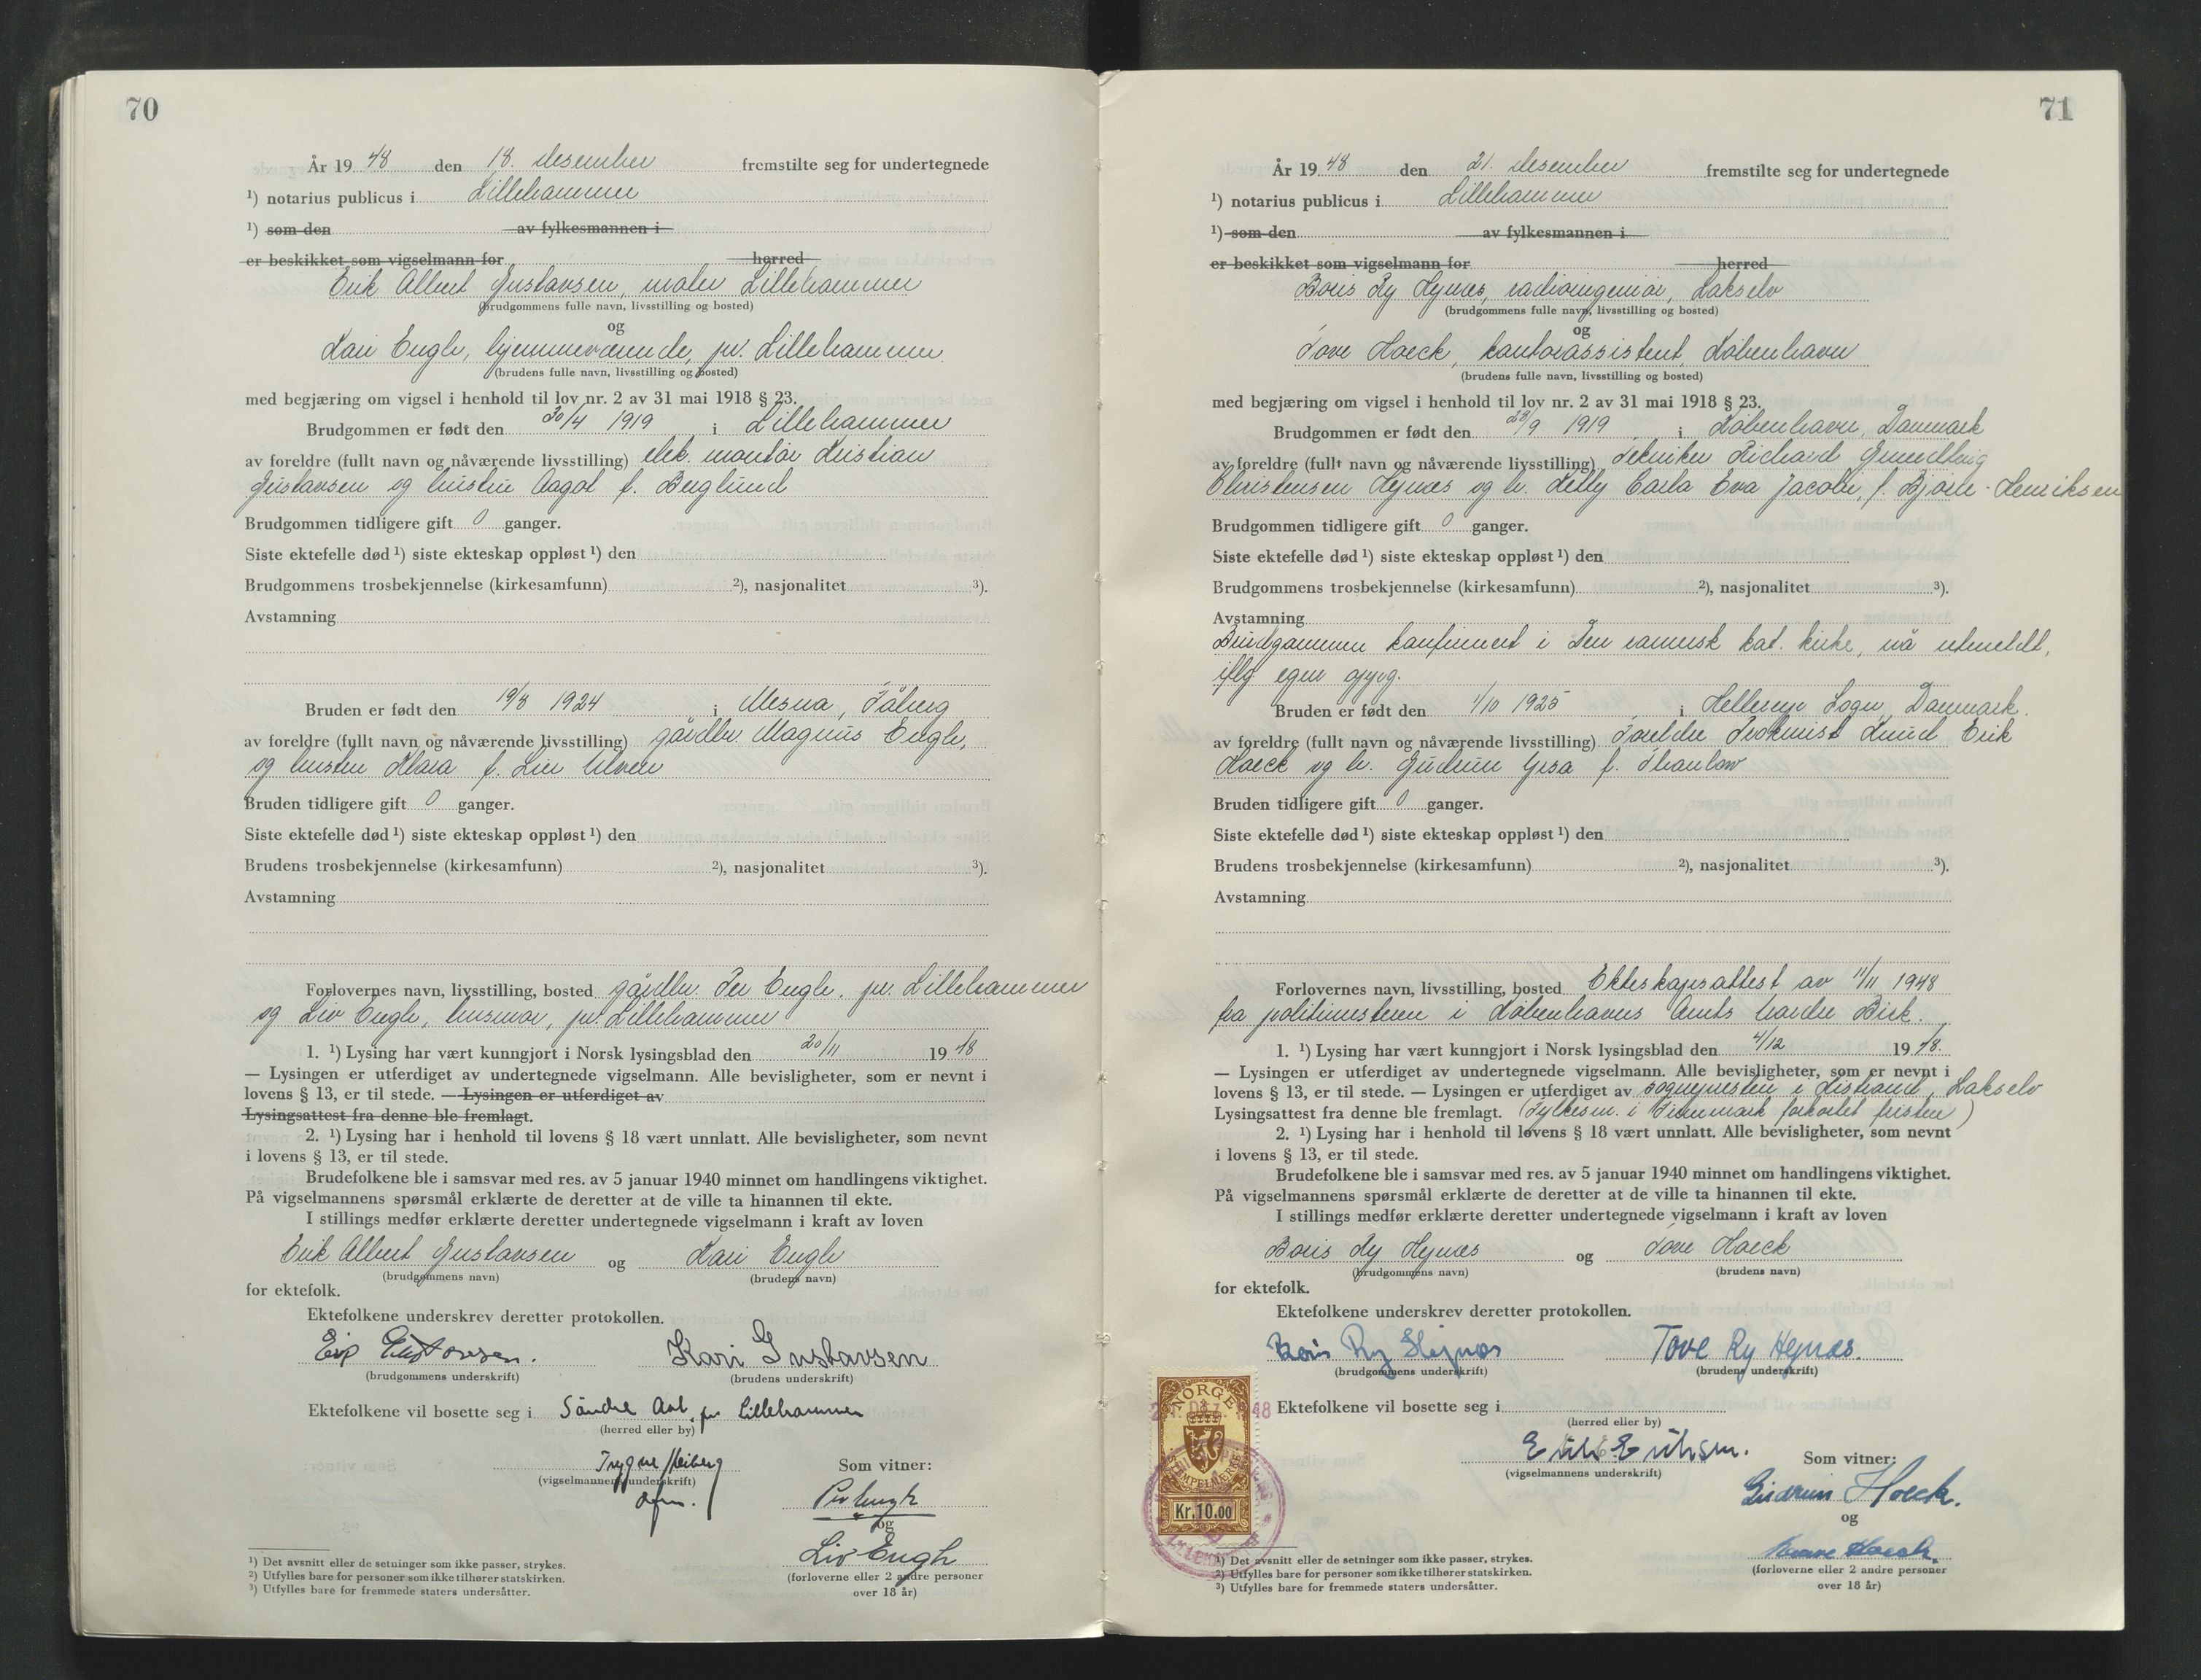 70
År 19 48 den 18. desember fremstilte seg for undertegnede
¹) notarius publicus i Lillehammer
¹) som den av fylkesmannen i
er beskikket som vigselmann for herred
Erik Albert Gustavsen, maler Lillehammer
(brudgommens fulle navn, livsstilling og bosted)
og
Kari Engh, hjemmeværende, pr. Lillehammer
(brudens fulle navn, livsstilling og bosted)
med begjæring om vigsel i henhold til lov nr. 2 av 31 mai 1918 § 23.
Brudgommen er født den 30/4 1919 i Lillehammer
av foreldre (fullt navn og nåværende livsstilling) elek. montør Kristian
Gustavsen og hustru Aagot f. Berglund
Brudgommen tidligere gift 0 ganger.
Siste ektefelle død ¹) siste ekteskap oppløst ¹) den
Brudgommens trosbekjennelse (kirkesamfunn) ²), nasjonalitet ³).
Avstamning
Bruden er født den 19/8 1924 i Mesna, Fåberg
av foreldre (fullt navn og nåværende livsstilling) gårdbr. Magnus Engh,
og hustru Klara f. Lie
Bruden tidligere gift 0 ganger.
Siste ektefelle død ¹) siste ekteskap oppløst ¹) den
Brudens trosbekjennelse (kirkesamfunn) ²), nasjonalitet ³).
Avstamning
Forlovernes navn, livsstilling, bosted gårdbr. Per Engh, pr. Lillehammer
og Liv Engh, husmor, pr. Lillehammer
1. ¹) Lysing har vært kunngjort i Norsk lysingsblad den 20/11 19 48
— Lysingen er utferdiget av undertegnede vigselmann. Alle bevisligheter, som er nevnt i
lovens § 13, er til stede. — Lysingen er utferdiget av
Lysingsattest fra denne ble fremlagt.
2. ¹) Lysing har i henhold til lovens § 18 vært unnlatt. Alle bevisligheter, som nevnt
i lovens § 13, er til stede.
Brudefolkene ble i samsvar med res. av 5 januar 1940 minnet om handlingens viktighet.
På vigselmannens spørsmål erklærte de deretter at de ville ta hinannen til ekte.
I stillings medfør erklærte deretter undertegnede vigselmann i kraft av loven
Erik Albert Gustavsen og Kari Engh
(brudgommens navn) (brudens navn)
for ektefolk.
Ektefolkene underskrev deretter protokollen.
Gustavsen. Kari Gustavsen
(brudgommens underskrift) (brudens underskrift)
Ektefolkene vil bosette seg i Søndre Aal, pr Lillehammer
(herred eller by)
Trygve Heiberg Som vitner:
(vigselmannens underskrift)
Per Engh
og
Liv Engh
(forloverne eller 2 andre personer
over 18 år)
¹) Det avsnitt eller de setninger som ikke passer, strykes.
²) Utfylles bare for personer som ikke tilhører statskirken.
³) Utfylles bare for fremmede staters undersåtter.
71
År 19 48 den 21. desember fremstilte seg for undertegnede
¹) notarius publicus i Lillehammer
¹) som den av fylkesmannen i
er beskikket som vigselmann for herred
Boris Ry Hejnæs, radioingeniør, Lakselv
(brudgommens fulle navn, livsstilling og bosted)
og
Tove Hoeck, kontorassistent, København
(brudens fulle navn, livsstilling og bosted)
med begjæring om vigsel i henhold til lov nr. 2 av 31 mai 1918 § 23.
Brudgommen er født den /9 1919 i København, Danmark
av foreldre (fullt navn og nåværende livsstilling) Tekniker Richard Grundtvig
Christensen Hejnæs og h. Kelly Carla Eva Jacobe, f. Bjerre-Henriksen
Brudgommen tidligere gift 0 ganger.
Siste ektefelle død ¹) siste ekteskap oppløst ¹) den
Brudgommens trosbekjennelse (kirkesamfunn) ²), nasjonalitet ³).
Avstamning
Brudgommen konfirmert i Den romersk kat. kirke, nå utmeldt,
iflg egen oppg.
Bruden er født den 1/10 1925 i Hellerup Sogn, Danmark.
av foreldre (fullt navn og nåværende livsstilling) Foreldre Prokurist Knud Erik
Hoeck og h. Gudrun Gesa f. Thaulow
Bruden tidligere gift 0 ganger.
Siste ektefelle død ¹) siste ekteskap oppløst ¹) den
Brudens trosbekjennelse (kirkesamfunn) ²), nasjonalitet ³).
Avstamning
Forlovernes navn, livsstilling, bosted Ekteskapsattest av 11/11 1948
fra politimesteren i Københavns Amts nordre Birk.
1. ¹) Lysing har vært kunngjort i Norsk lysingsblad den 4/12 19 48.
— Lysingen er utferdiget av undertegnede vigselmann. Alle bevisligheter, som er nevnt i
lovens § 13, er til stede. — Lysingen er utferdiget av sognepresten i Kistrand, Lakselv
Lysingsattest fra denne ble fremlagt. (Fylkesm. i Finnmark forkortet fristen)
2. ¹) Lysing har i henhold til lovens § 18 vært unnlatt. Alle bevisligheter, som nevnt
i lovens § 13, er til stede.
Brudefolkene ble i samsvar med res. av 5 januar 1940 minnet om handlingens viktighet.
På vigselmannens spørsmål erklærte de deretter at de ville ta hinannen til ekte.
I stillings medfør erklærte deretter undertegnede vigselmann i kraft av loven
Boris Ry Hejnæs og Tove Hoeck
(brudgommens navn) (brudens navn)
for ektefolk.
Ektefolkene underskrev deretter protokollen.
Boris Ry Hejnæs Tove Ry Hejnæs.
(brudgommens underskrift) (brudens underskrift)
Ektefolkene vil bosette seg i
(herred eller by)
NORGE
STEMPELMERKE
Kr. 10.00
Erik Eriksen. Som vitner:
(vigselmannens underskrift)
Gudrun Hoeck.
og
Hoeck.
(forloverne eller 2 andre personer
over 18 år)
¹) Det avsnitt eller de setninger som ikke passer, strykes.
²) Utfylles bare for personer som ikke tilhører statskirken.
³) Utfylles bare for fremmede staters undersåtter.